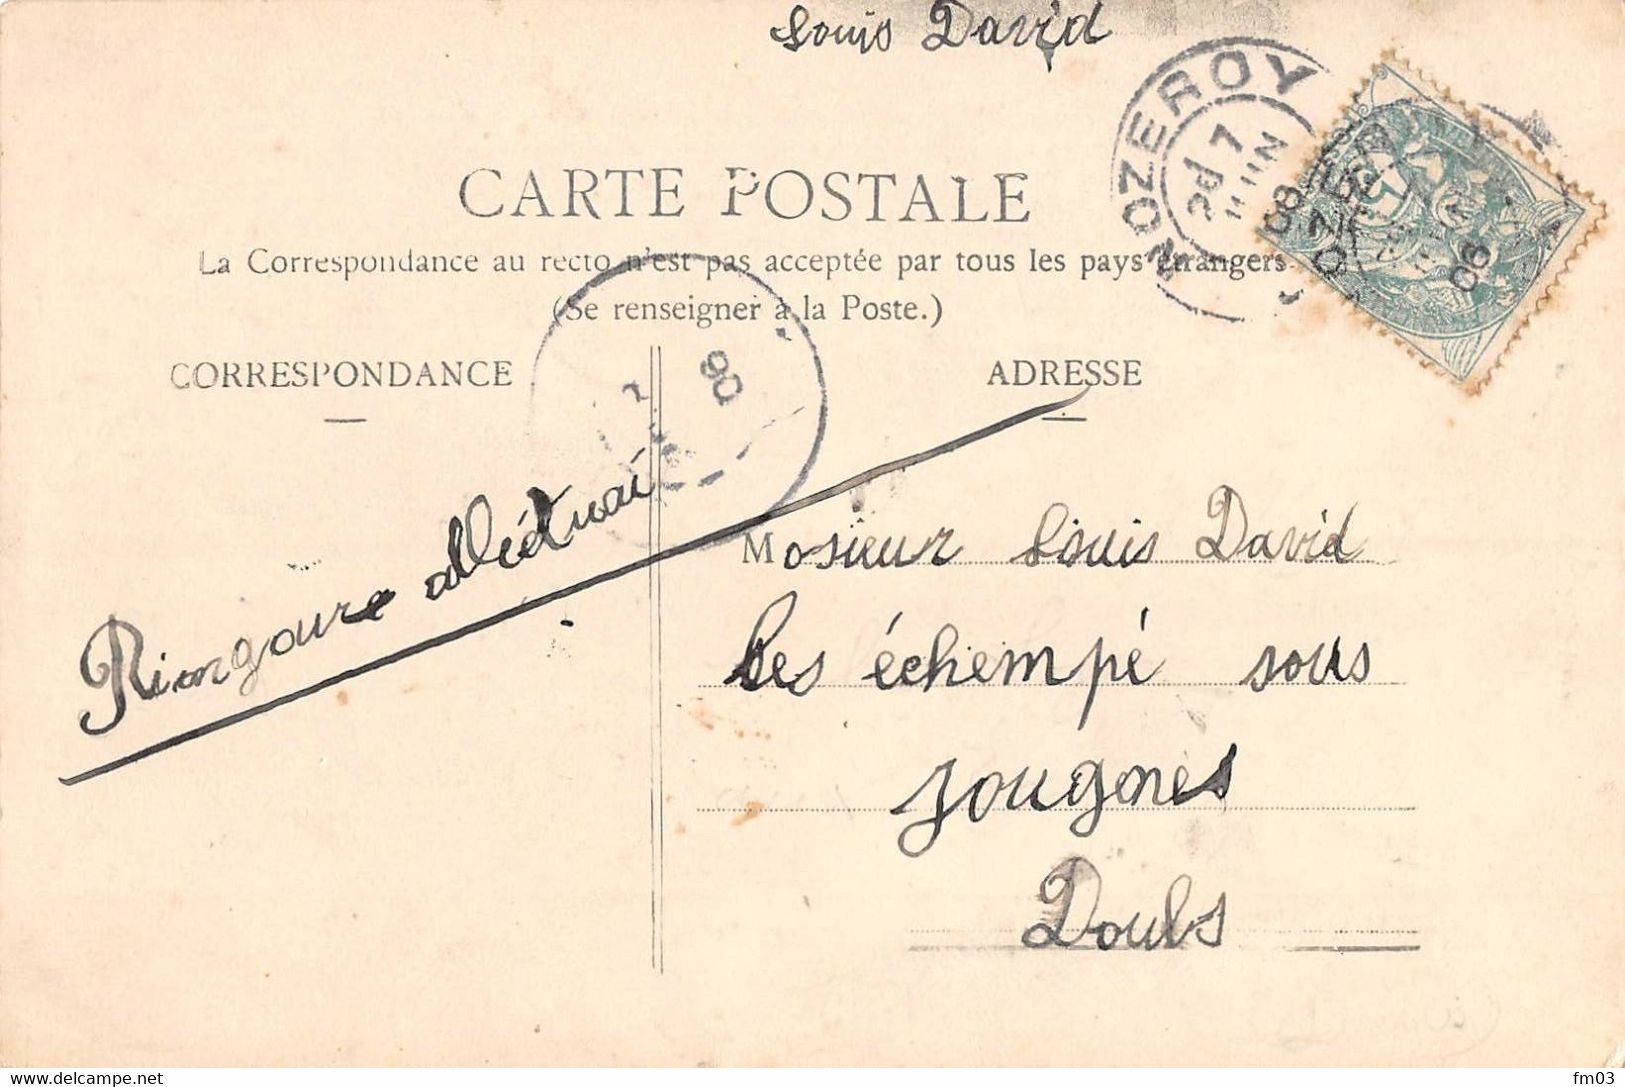 Louis David
NOZEROY
2d 7
JUIN
06
CARTE POSTALE
La Correspondance au recto n'est pas acceptée par tous les pays étrangers
(Se renseigner à la Poste.)
06
CORRESPONDANCE
ADRESSE
Mosieur Louis David
Les échempé sous
Jougnes
Doubs
delcampe.net
fm03